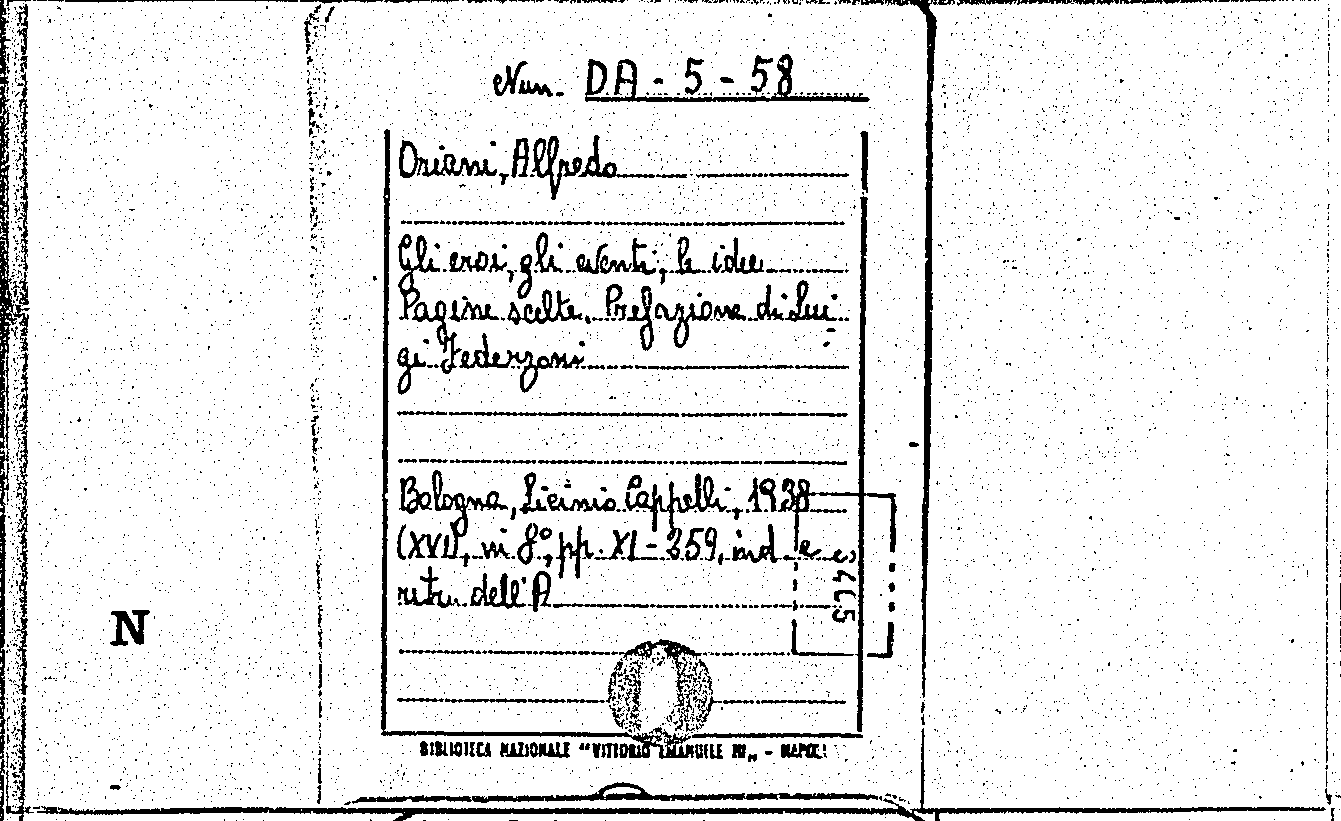 Nun. DA - 5 - 58
Oriani, Alfredo
Gli eroi, gli eventi, le idee
Pagine scelte. Prefazione di Lui
gi Federzoni
Bologna, Licinio Cappelli, 1938
(XVI), in 8°, pp. XI - 359, ind. e
ritr. dell'A
N
BIBLIOTECA NAZIONALE "VITTORIO EMANUELE III„ - NAPOLI